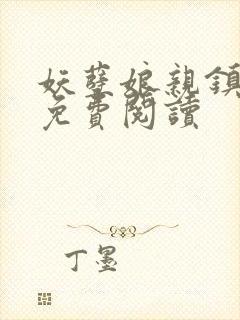 妖孽娘親鎮
免費閱讀
丁墨